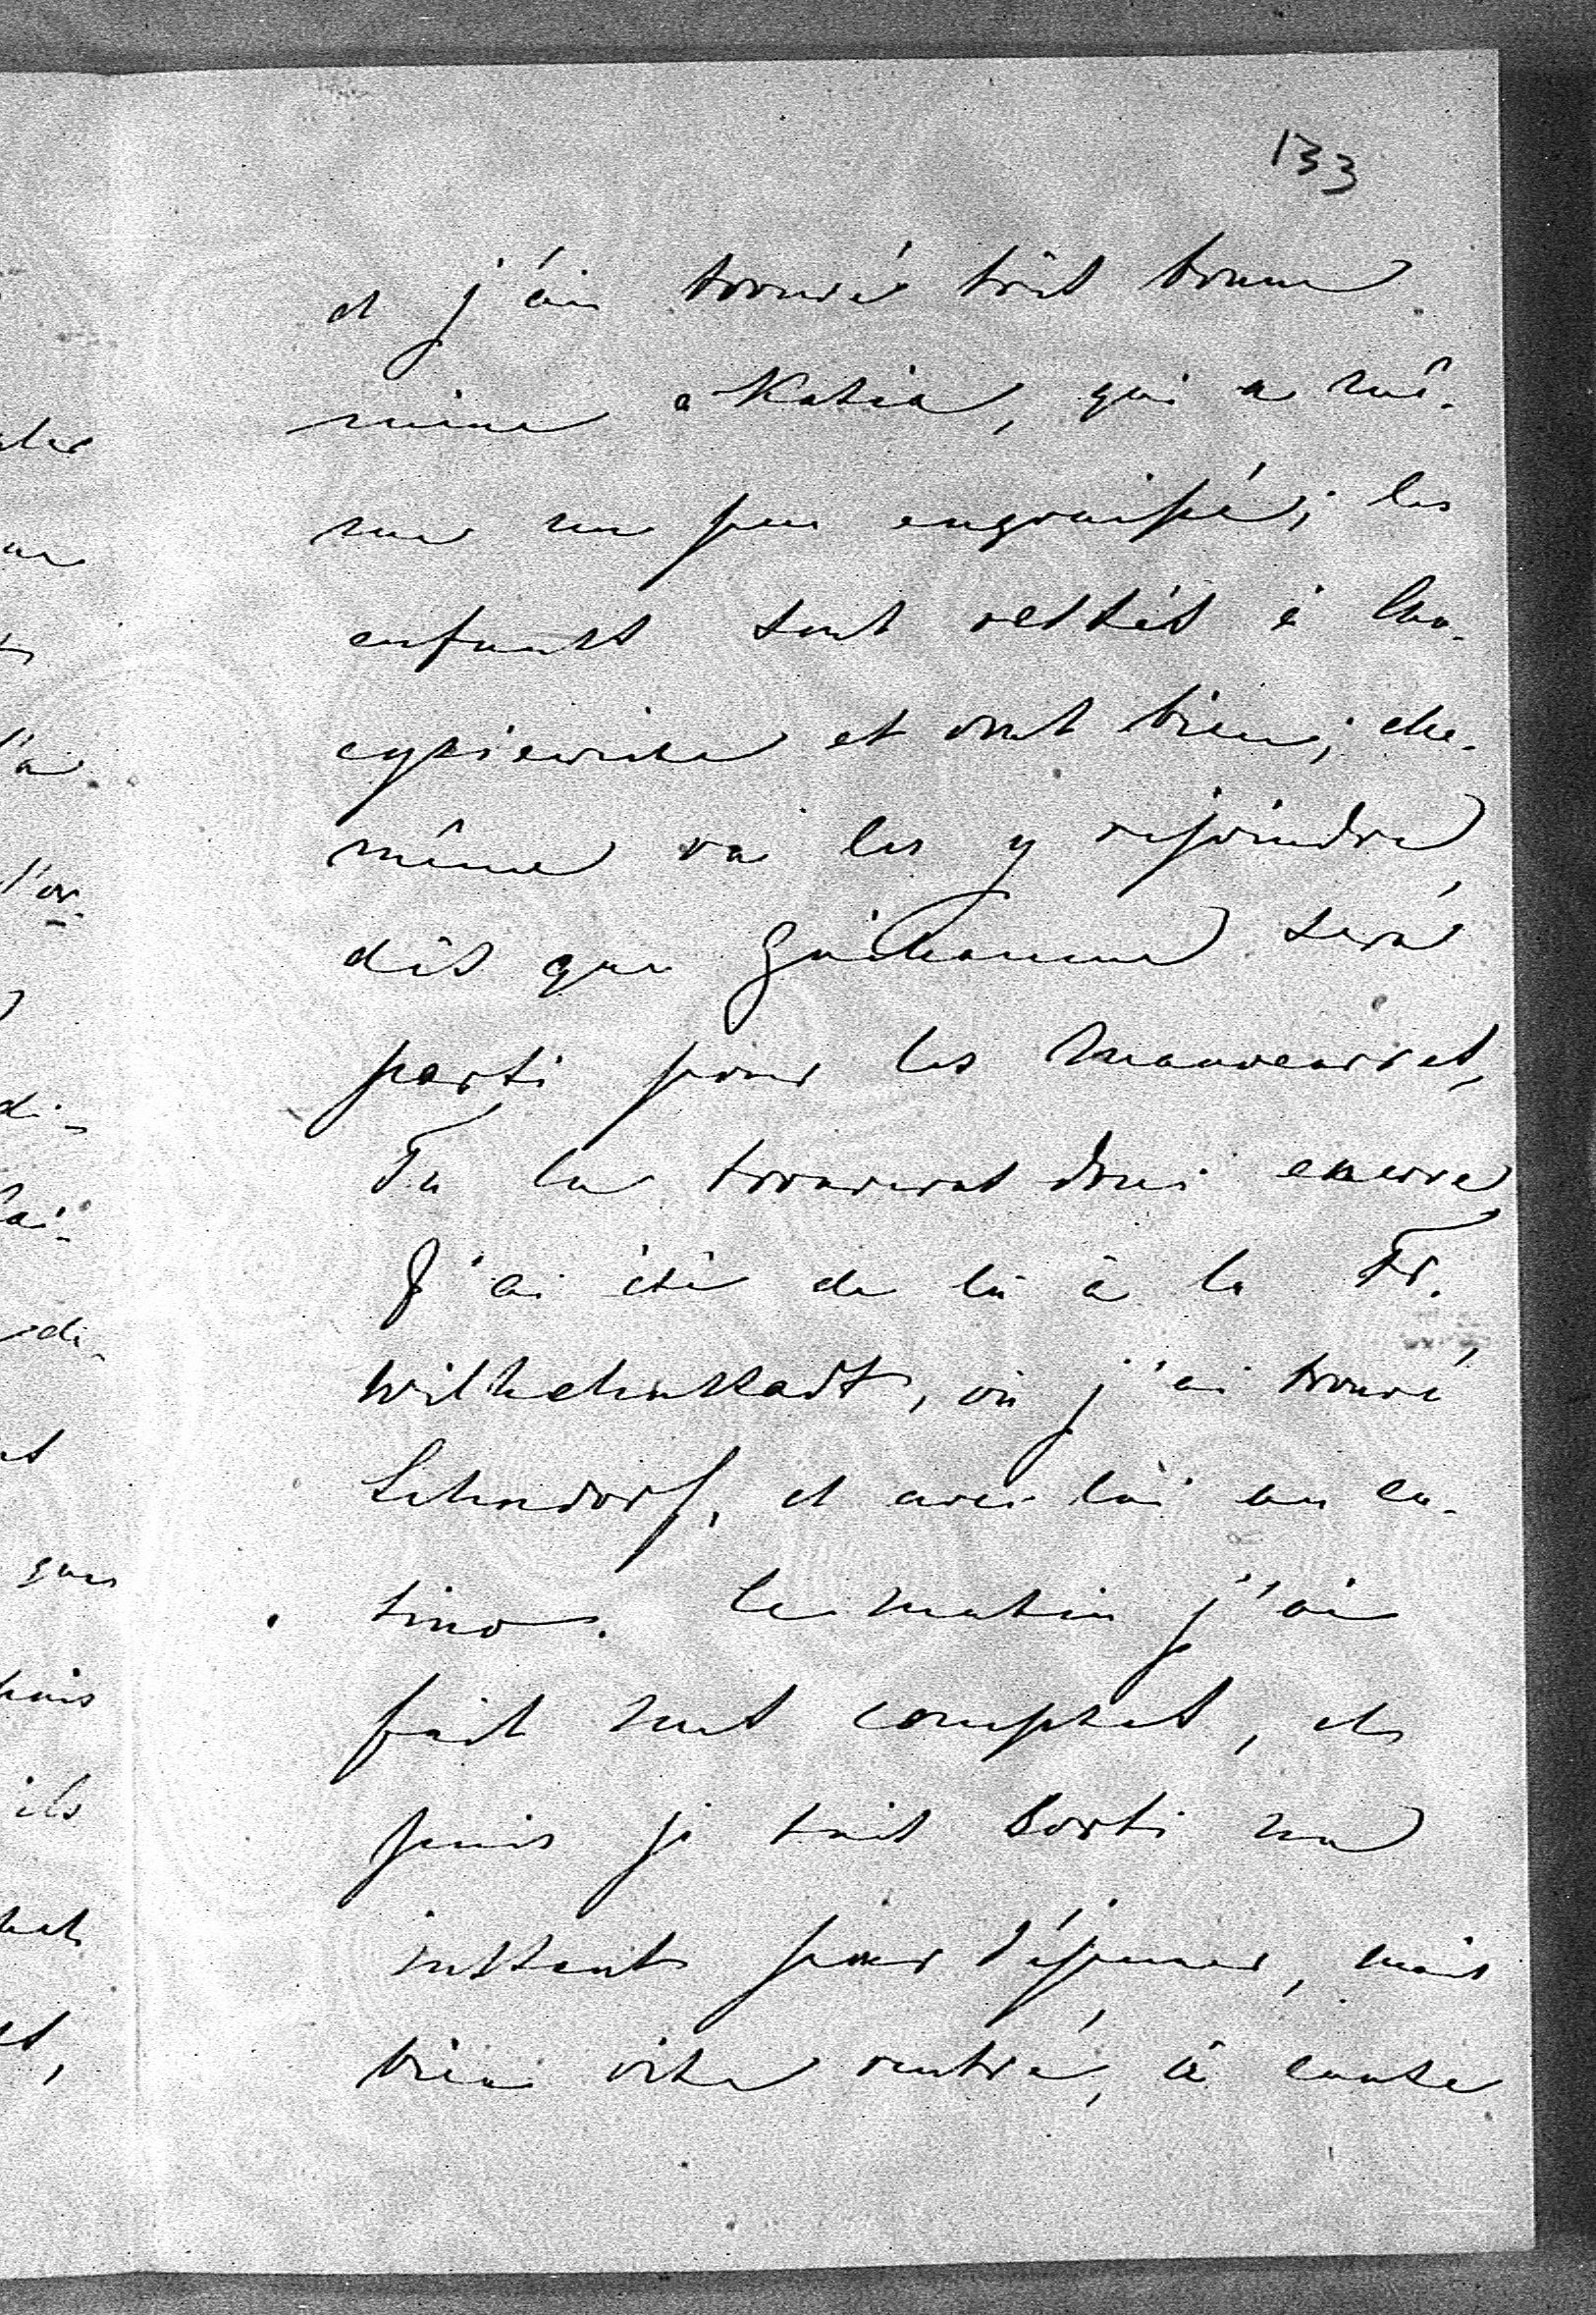 133
et j'ai trouvé très bonne
mine à Katia, qui a mê-
me un peu engraissé; les
enfants sont restés à Cho-
cyszewice et vont bien; elle-
même va les y rejoindre,
dès que Guillaume sera
parti pour les manoeuvres,
Tu la trouveras donc encore
J'ai été de là à la Fr.
Wilhelmstadt, où j'ai trouvé
Lehndorf, et avec lui au ca-
sino. Ce matin j'ai
fait mes comptes, et
puis je suis sorti un
instant pour déjeuner, mais
bien vite rentré, à cause